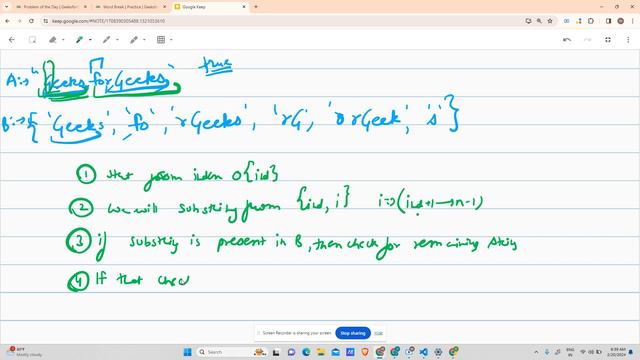 Problem of the Day | Geeksfo
Word Break | Practice | Geeksf
Google Keep
keep.google.com/#NOTE/1708390305489.1321033610
true
A:→ "GeeksforGeeks"
B:→ { 'Geeks', 'fo', 'rGeeks', 'rG', 'orGeek', 's' }
① start from index 0 {ind}
② we will substring from {ind, i} i => (ind+1 → n-1)
③ if substring is present in B, then check for remaining string
④ If that chec
Screen Recorder is sharing your screen.
Stop sharing
Hide
80°F
Mostly cloudy
Search
ENG
IN
8:39 AM
2/20/2024